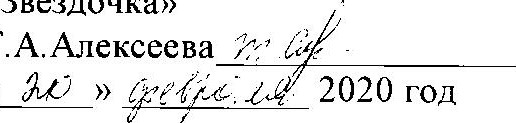 Звездочка»
Т.А.Алексеева
» февраля 2020 год